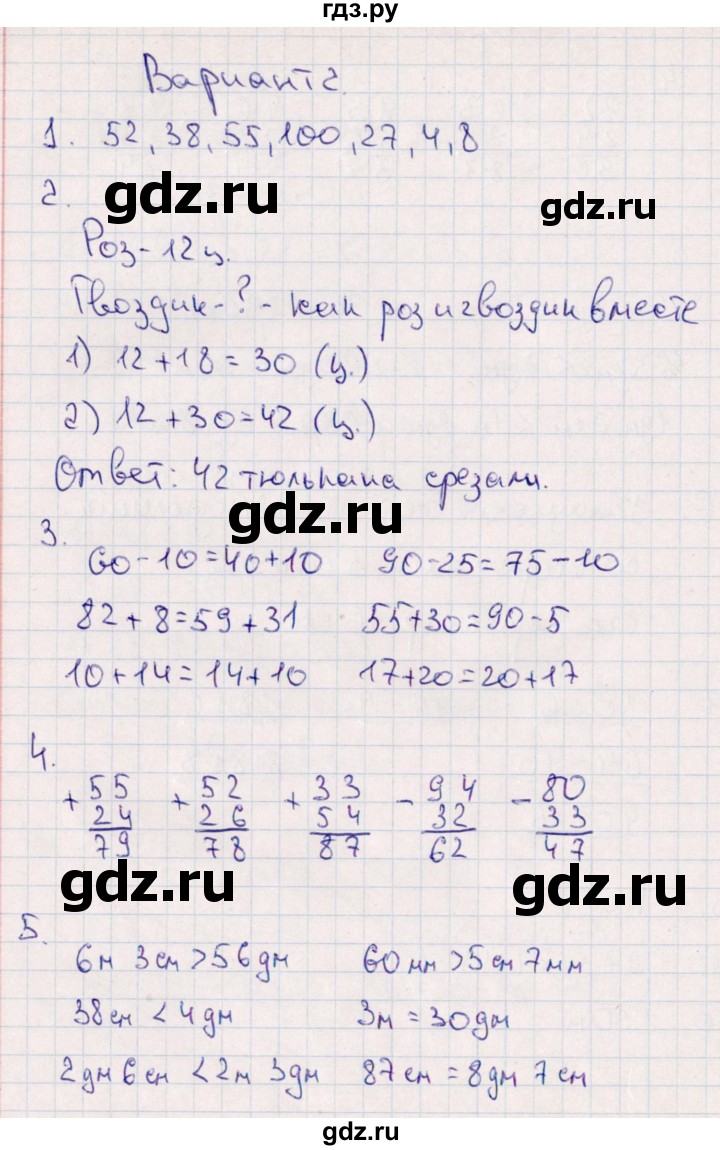 гдз.ру
Вариант 2.
1. 52, 38, 55, 100, 27, 4, 8
2.
gdz.ru gdz.ru
Роз - 12 ц.
Гвоздик - ? - как роз и гвоздик вместе
1) 12 + 18 = 30 (ц.)
2) 12 + 30 = 42 (ц.)
Ответ: 42 тюльпана срезали.
gdz.ru
3.
60 - 10 = 40 + 10 90 - 25 = 75 - 10
82 + 8 = 59 + 31 55 + 30 = 90 - 5
10 + 14 = 14 + 10 17 + 20 = 20 + 17
4.
+ 55 + 52 + 33 - 94 - 80
24 26 54 32 33
79 78 87 62 47
gdz.ru gdz.ru
5.
6м 3см > 56дм 60мм > 5см 7мм
38см < 4дм 3м = 30дм
2дм 6см < 2м 3дм 87см = 8дм 7см
gdz.ru